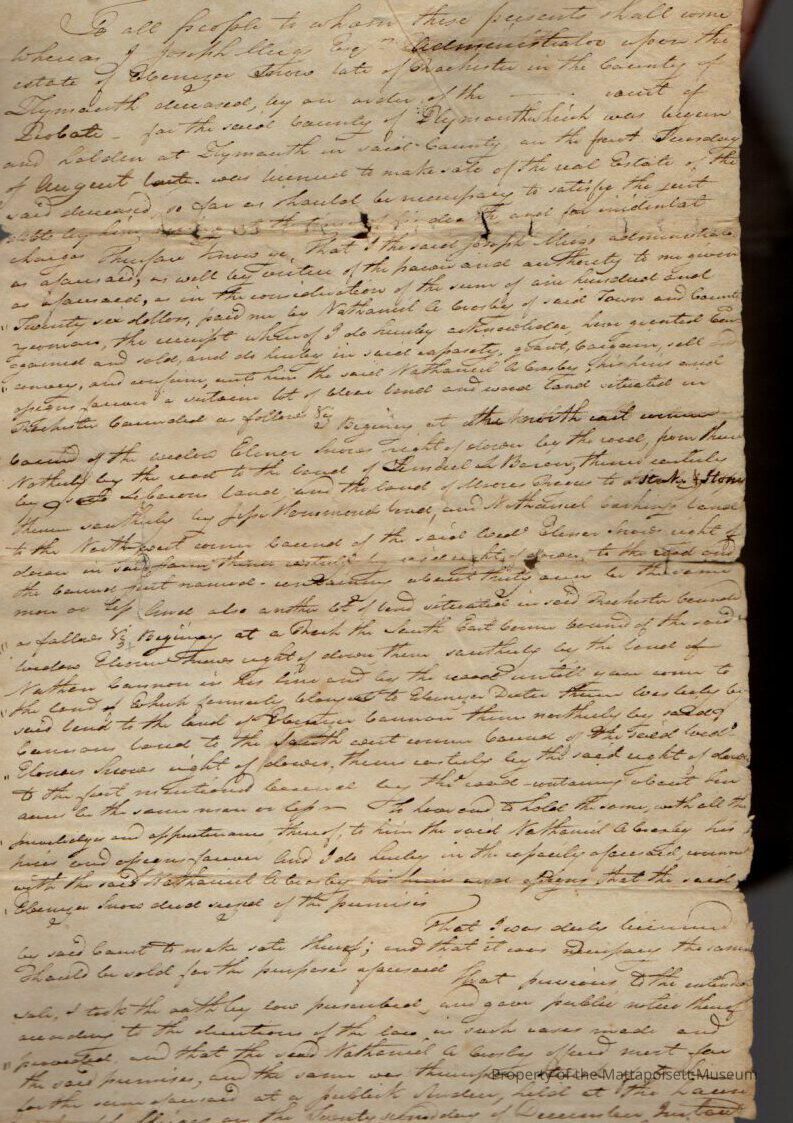 To all people to whom these presents shall come
Whereas I Joseph Meigs Esqr Administrator upon the
estate of Ebenezer Snow late of Rochester in the County of
Plymouth deceased, by an order of the court of
Probate for the said County of Plymouth which was begun
and holden at Plymouth in said County on the first Tuesday
of August last was licensed to make sale of the real Estate of the
said deceased, so far as should be necessary to satisfy the just
debts and for incidental
charges Therefore know ye, That I the said Joseph Meigs administrator
as aforesaid, as well by virtue of the power and authority to me given
as aforesaid, as in the consideration of the sum of and
Twenty six dollars, paid me by Nathaniel A Crosby of said Town and County
yeoman, the receipt whereof I do hereby acknowledge, have granted bar
gained and sold, and do hereby in said capacity, grant, bargain, sell and
convey, and confirm, unto him the said Nathaniel A Crosby, his heirs and
assigns forever a certain lot of clear land and wood land situated in
Rochester bounded as follows Viz Begining at the North east corner
bound of the widow Elener Snows right of dower by the road, from thence
Notherly by the road to the land of Lemuel Le Baron, thence westerly
by sd Lebarons land and the land of Moores to a Stake & Stones
thence southerly by Jese Hammond land, and Nathaniel Cushings land
to the North west corner bound of the said Wedo Elener Snows right of
dower in said farm, thence easterly said right of dower, to the road and
the bounds first named - containing about thirty acres be the same
more or less And also another lot of land situated in said Rochester bounded
as follows Viz Begining at a Rock the South East corner bound of the said
widow Elener Snows right of dower thence southerly by the land of
Nathan Cannon in his line and by the road untill you come to
the land of which formerly belonged to Ebenezer Dexter thence westerly by
said land to the land of Ebenezer Cannon thence northerly by said
Cannons land to the South west corner bound of the said Wedo
Eleners Snows right of dower, thence easterly by the said right of dower
to the first mentioned bound by the road - containing about
acres be the same more or less To have and to hold the same, with all the
privileges and appurtenance thereof, to him the said Nathaniel A Crosby his
heirs and assigns forever And I do hereby in the capacity aforesaid, covenant
with the said Nathaniel A Crosby his heirs and assigns that the said
Ebenezer Snow died seized of the premises
That I was duly licensed
by said Court to make sale thereof; and that it was necessary the same
should be sold for the purposes aforesaid
That previous to the intended
sale, I took the oath by law prescribed, and gave public notice thereof
according to the directions of the law in such cases made and
provided and that the said Nathaniel A Crosby offered most for
the said premises, and the same was
for the sum aforesaid at a publick Vendue, held at the house
on the Twenty day of December Instant
Property of the Mattapoisett Museum